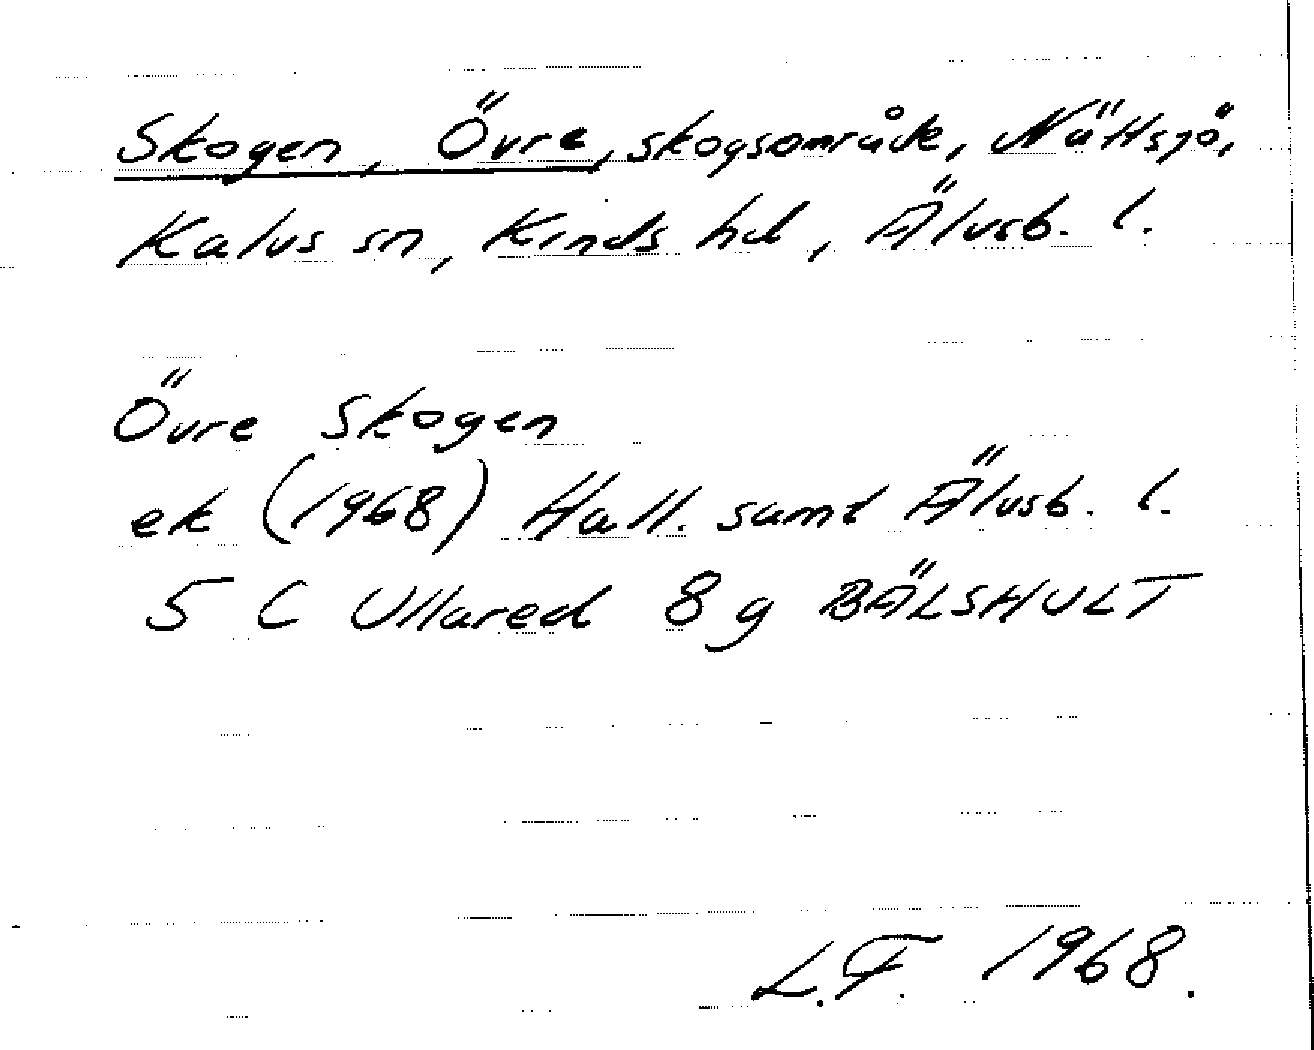 Skogen, Övre, skogsområde, Nättsjö,
Kalvs sn, Kinds hd, Älvsb. l.
Övre Skogen
ek (1968) Hall. samt Älvsb. l.
5 C Ullared 8 g BÄLSHULT
L.F. 1968.